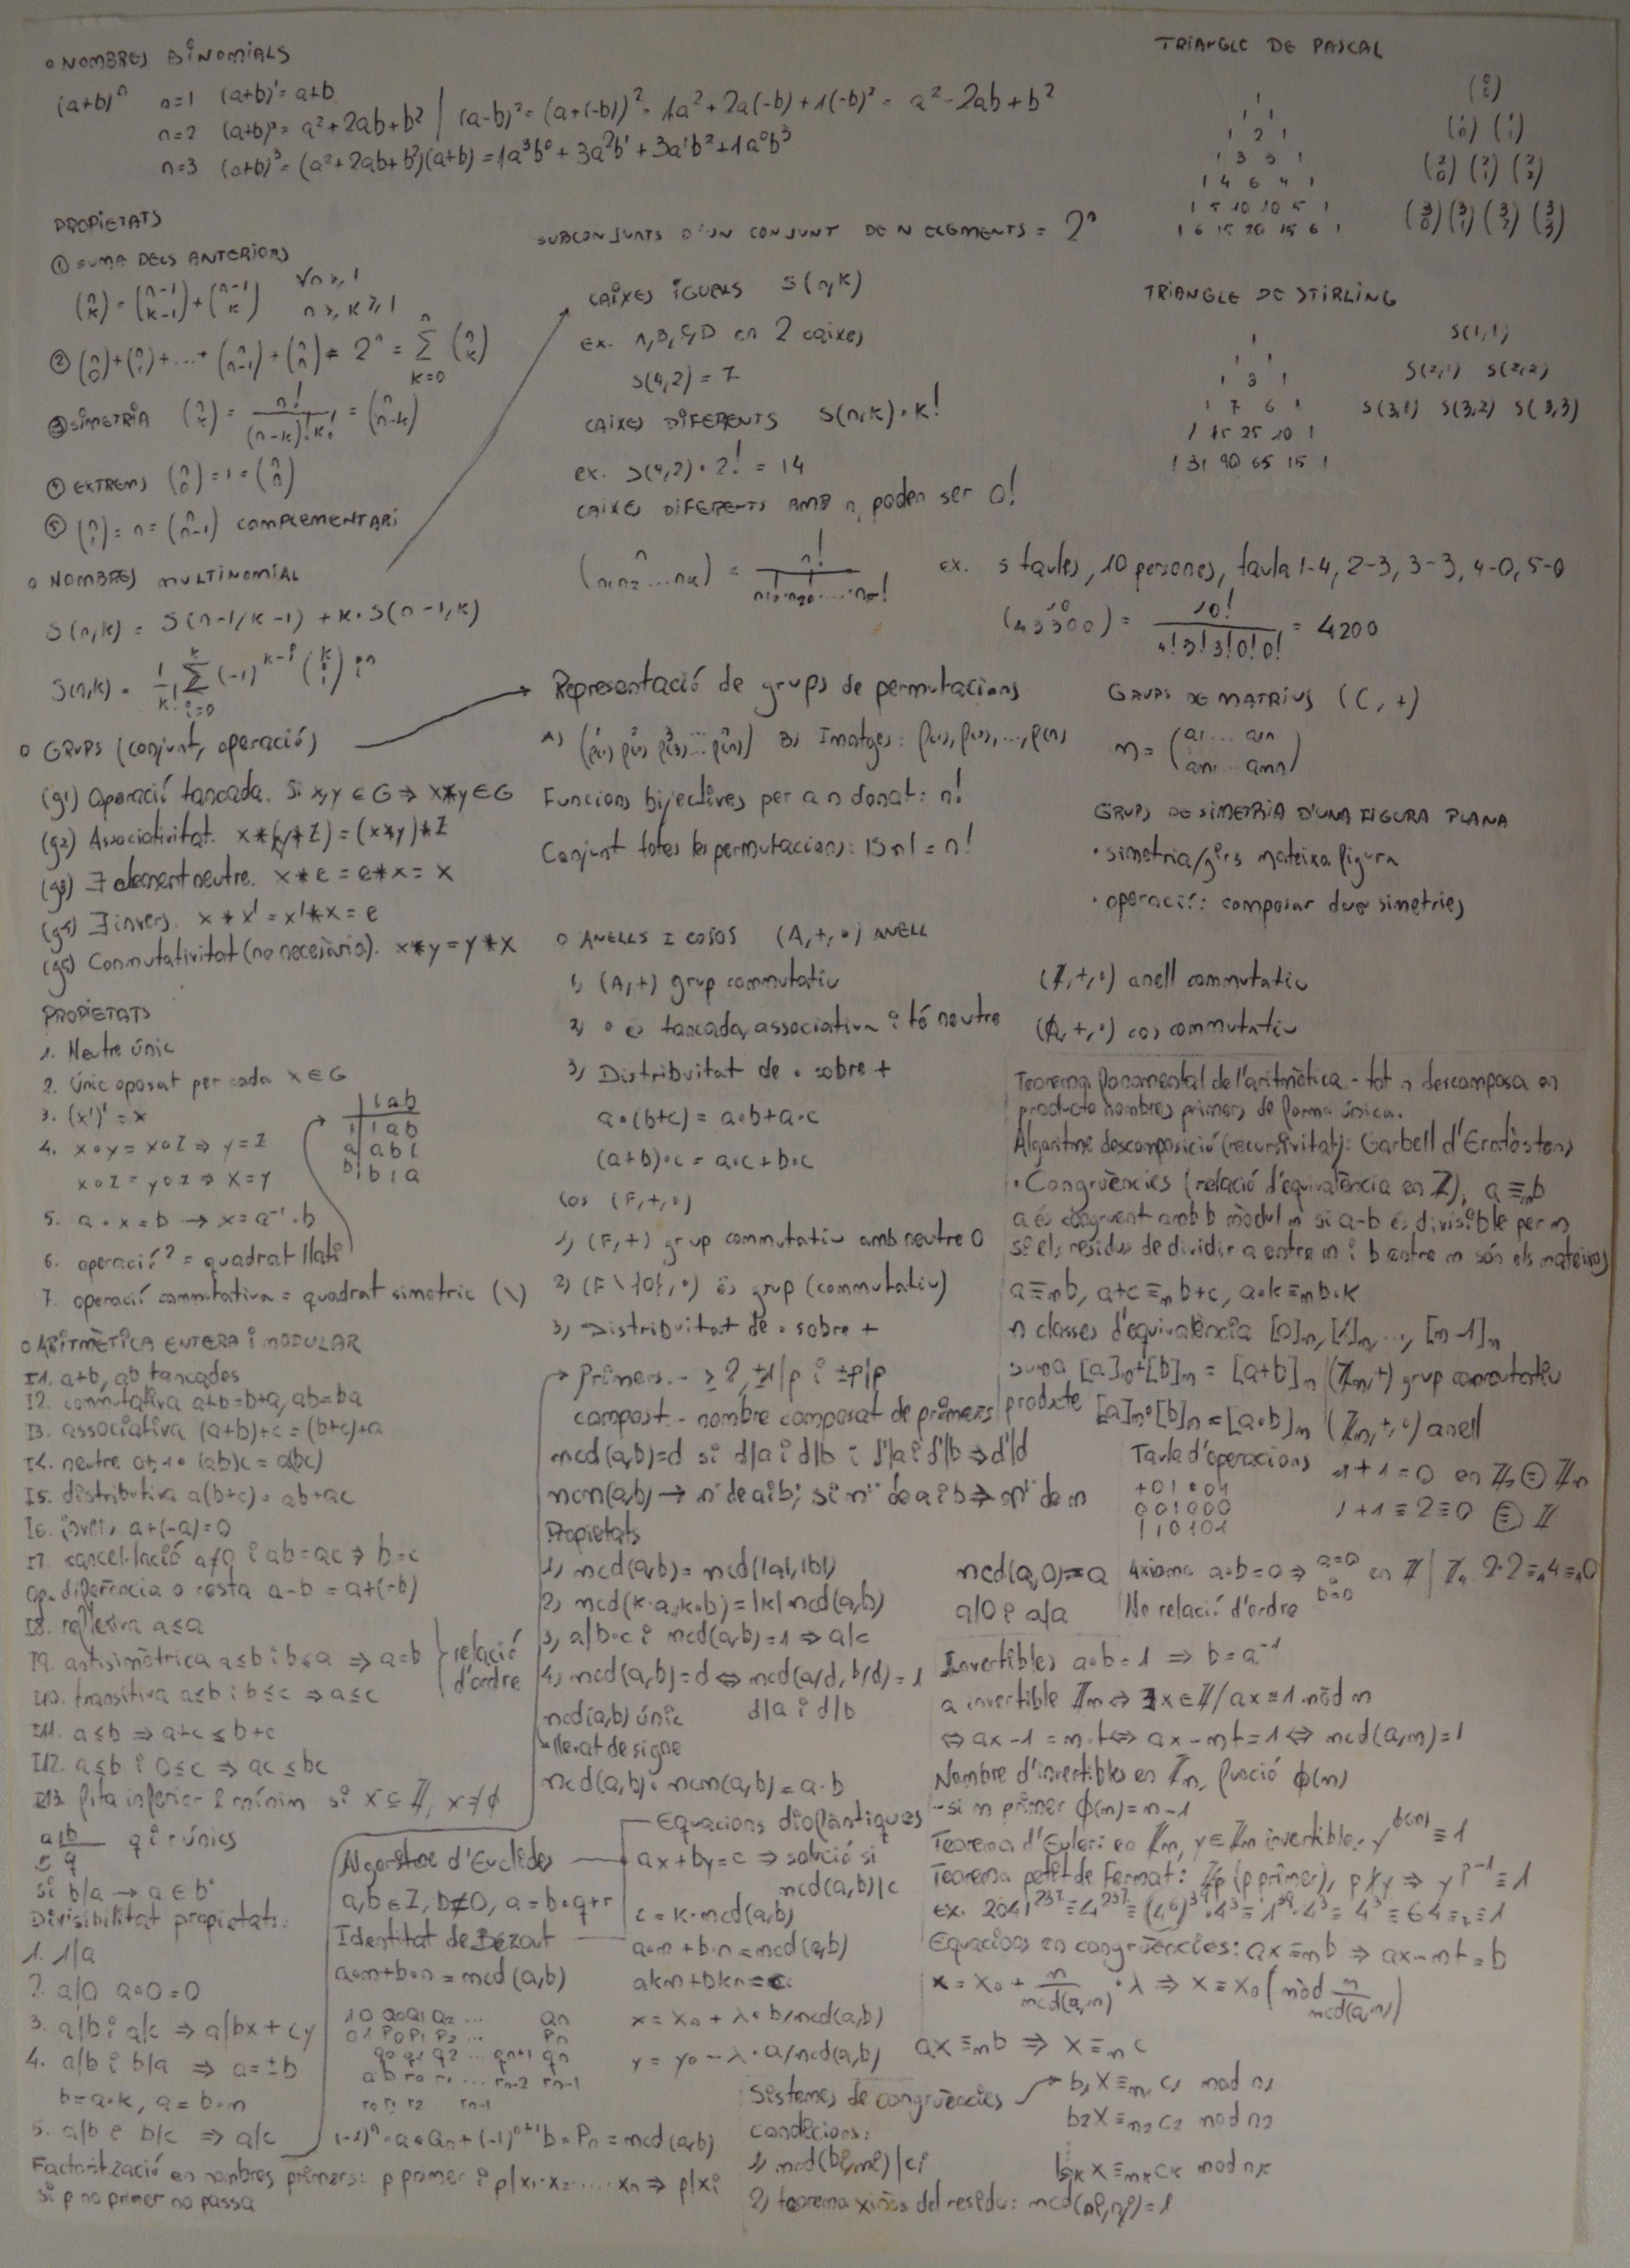 o NOMBRES BINOMIALS
(a+b)^n n=1 (a+b)^1 = a+b
n=2 (a+b)^2 = a^2+2ab+b^2 | (a-b)^2 = (a+(-b))^2 = 1a^2+2a(-b)+1(-b)^2 = a^2-2ab+b^2
n=3 (a+b)^3 = (a^2+2ab+b^2)(a+b) = 1a^3b^0+3a^2b^1+3a^1b^2+1a^0b^3
PROPIETATS
① SUMA DELS ANTERIORS
(n k) = (n-1 k-1) + (n-1 k) ∀n≥1 n≥k≥1
② (n 0)+(n 1)+...+(n n-1)+(n n) = 2^n = Σ k=0 n (n k)
③ SIMETRIA (n k) = n!/((n-k)!k!) = (n n-k)
④ EXTREMS (n 0) = 1 = (n n)
⑤ (n 1) = n = (n n-1) COMPLEMENTARI
o NOMBRES MULTINOMIAL
S(n,k) = S(n-1,k-1) + k·S(n-1,k)
S(n,k) = 1/k! Σ i=0 k (-1)^k-i (k i) i^n
o GRUPS (conjunt, operació)
(g1) Operació tancada. Si x,y ∈ G ⇒ x*y ∈ G
(g2) Associativitat. x*(y*z) = (x*y)*z
(g3) ∃ element neutre. x*e = e*x = x
(g4) ∃ invers. x*x' = x'*x = e
(g5) Conmutativitat (no necesària). x*y = y*x
PROPIETATS
1. Neutre únic
2. únic oposat per cada x∈G
3. (x')' = x
4. x∘y = x∘z ⇒ y=z
x∘z = y∘z ⇒ x=y
5. a·x=b → x=a^-1·b
6. operació? = quadrat llatí
7. operació commutativa = quadrat simetric (\)
| 1 a b
1 | 1 a b
a | a b 1
b | b 1 a
o ARITMÈTICA ENTERA i MODULAR
I1. a+b, ab tancades
I2. conmutativa a+b=b+a, ab=ba
I3. associativa (a+b)+c = (b+c)+a
I4. neutre 0+, 1· (ab)c = a(bc)
I5. distributiva a(b+c) = ab+ac
I6. invers a+(-a)=0
I7. cancel·lació a≠0 i ab=ac ⇒ b=c
op. diferència o resta a-b = a+(-b)
I8. reflexiva a≤a
I9. antisimètrica a≤b i b≤a ⇒ a=b
I10. transitiva a≤b i b≤c ⇒ a≤c
relació d'ordre
I11. a≤b ⇒ a+c ≤ b+c
I12. a≤b i 0≤c ⇒ ac ≤ bc
I13. fita inferior i mínim si x⊆Z, x≠∅
a|b
r q q i r únics
si b/a → a∈b°
Divisibilitat propietats:
1. 1|a
2. a|0 a·0=0
3. a|b i a|c ⇒ a|bx+cy
4. a|b i b|a ⇒ a=±b
b=a·k, a=b·m
5. a|b i b|c ⇒ a|c
Factorització en nombres primers: p primer i p|x1·x2·...·xn ⇒ p|xi
si p no primer no passa
SUBCONJUNTS D'UN CONJUNT DE N ELEMENTS = 2^n
CAIXES IGUALS S(n,k)
ex. A,B,C,D en 2 caixes
S(4,2) = 7
CAIXES DIFERENTS S(n,k)·k!
ex. S(4,2)·2! = 14
CAIXES DIFERENTS AMB n, poden ser 0!
(n n1 n2 ... nk) = n!/(n1!·n2!·...·nk!)
ex. 5 taules, 10 persones, taula 1-4, 2-3, 3-3, 4-0, 5-0
(10 43300) = 10!/(4!3!3!0!0!) = 4200
Representació de grups de permutacions
A) (1 2 3 ... n p(1) p(2) p(3)... p(n)) B) Imatges: p(1), p(2), ..., p(n)
Funcions bijectives per a n donat: n!
Conjunt totes les permutacions: |Sn| = n!
o ANELLS I COSOS (A,+,·) ANELL
1) (A,+) grup commutatiu
2) · és tancada, associativa i té neutre
3) Distribuitat de · sobre +
a·(b+c) = a·b+a·c
(a+b)·c = a·c+b·c
Cos (F,+,·)
1) (F,+) grup commutatiu amb neutre 0
2) (F\{0},·) és grup (commutatiu)
3) Distribuitat de · sobre +
Primers.- ≥2, ±1|p i ±p|p
compost.- nombre composat de primers
mcd(a,b)=d si d|a i d|b i d'|a i d'|b ⇒ d'|d
Propietats
1) mcd(a,b) = mcd(|a|,|b|)
2) mcd(k·a,k·b) = |k| mcd(a,b)
3) a|b·c i mcd(a,b)=1 ⇒ a|c
4) mcd(a,b)=d ⇔ mcd(a/d, b/d)=1
mcd(a,b) únic d|a i d|b
llevat de signe
mcd(a,b)·mcm(a,b) = a·b
Algorisme d'Euclides
a,b∈Z, b≠0, a=b·q+r
Identitat de Bézout
a·m+b·n = mcd(a,b)
1 0 Q0 Q1 Q2 ... Qn
0 1 P0 P1 P2 ... Pn
q0 q1 q2 ... qn+1 qn
a b r0 r1 ... rn-2 rn-1
r0 r1 r2 rn-1
(-1)^n·a·Qn+(-1)^n+1 b·Pn = mcd(a,b)
Equacions diofàntiques
ax+by=c ⇒ solució si
mcd(a,b)|c
c = k·mcd(a,b)
a·m+b·n = mcd(a,b)
akm+bkn = c
x = x0+λ·b/mcd(a,b)
y = y0-λ·a/mcd(a,b)
TRIANGLE DE PASCAL
1
1 2 1
1 3 3 1
1 4 6 4 1
1 5 10 10 5 1
1 6 15 20 15 6 1
(0 0)
(1 0) (1 1)
(2 0) (2 1) (2 2)
(3 0) (3 1) (3 2) (3 3)
TRIANGLE DE STIRLING
1
1 3 1
1 7 6 1
1 15 25 10 1
1 31 90 65 15 1
S(1,1)
S(2,1) S(2,2)
S(3,1) S(3,2) S(3,3)
GRUPS DE MATRIUS (C,+)
m = (a1 ... a1n an1 ... ann)
GRUPS DE SIMETRIA D'UNA FIGURA PLANA
· simetria/girs mateixa figura
· operació: composar dues simetries
(Z,+,·) anell commutatiu
(Q,+,·) cos commutatiu
Teorema fonamental de l'aritmètica - tot n descomposa en
producte nombres primers de forma única.
Algoritme descomposició (recursivitat): Garbell d'Eratòstens
· Congruències (relació d'equivalència en Z), a≡m b
a és congruent amb b mòdul m si a-b és divisible per m,
si els residus de dividir a entre m i b entre m són els mateixos
a≡m b, a+c≡m b+c, a·k≡m b·k
n classes d'equivalència [0]n, [1]n, ..., [n-1]n
suma [a]n+[b]n = [a+b]n | (Zn,+) grup commutatiu
producte [a]n·[b]n = [a·b]n (Zn,+,·) anell
Taula d'operacions
+ 0 1 · 0 1
0 0 1 0 0 0
1 1 0 1 0 1
1+1≡2≡0
mcd(a,0)=a
a|0 i a|a
Axioma a·b=0 ⇒ a=0 o b=0 en Z | Z4 2·2=4 4=4 0
No relació d'ordre
Invertibles a·b=1 ⇒ b=a^-1
a invertible Zm ⇔ ∃x∈Z/ax≡1 mòd m
⇔ ax-1 = m·t ⇔ ax-mt=1 ⇔ mcd(a,m)=1
Nombre d'invertibles en Zn, funció φ(m)
- si m primer φ(m)=m-1
Teorema d'Euler: en Zm, y∈Zm invertible, y^φ(m) ≡ 1
Teorema petit de Fermat: Zp (p primer), p∤y ⇒ y^p-1 ≡ 1
ex. 2041^237 ≡ 4^237 ≡ (4^6)^39·4^3 ≡ 1^39·4^3 ≡ 4^3 ≡ 64 ≡7 1
Equacions en congruències: ax≡m b ⇒ ax-mt=b
x = x0 + m/mcd(a,m)·λ ⇒ x≡x0 (mòd m/mcd(a,m))
ax≡m b ⇒ x≡m c
Sistemes de congruències
b1x≡m1 c1 mod n1
b2x≡m2 c2 mod n2
bkx≡mk ck mod nk
condicions:
1) mcd(bi,mi)|ci
2) teorema xinès del residu: mcd(ni,nj)=1